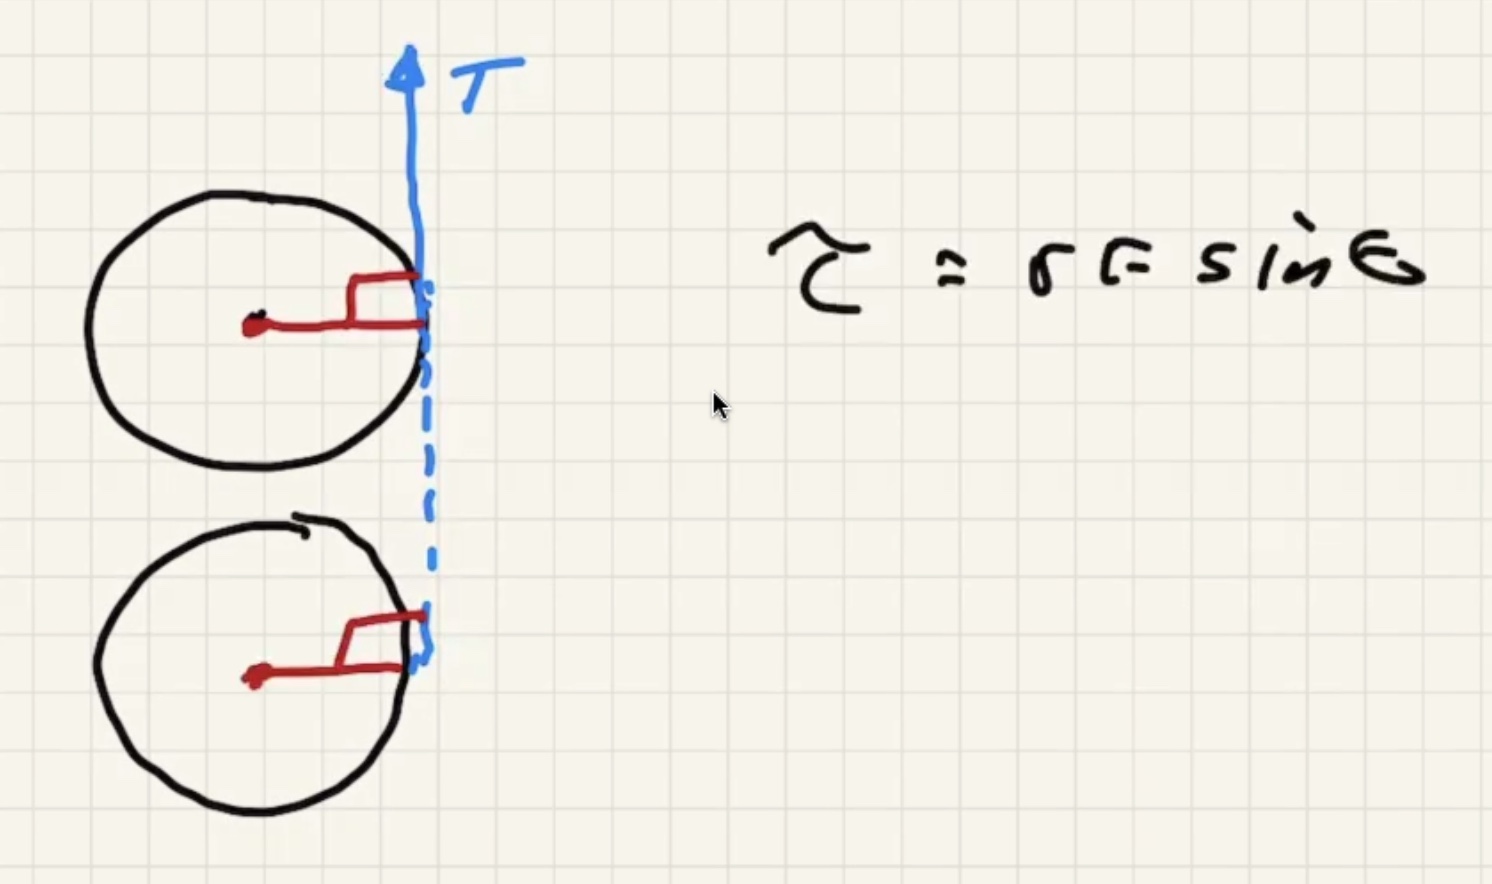 T
τ = rF sinθ